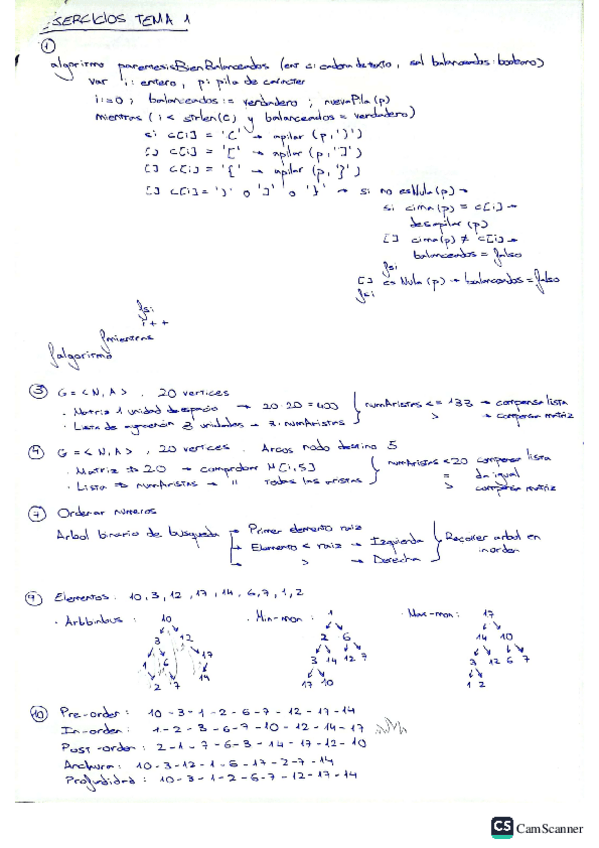 EJERCICIOS TEMA 1
①
algoritmo parentesisBienBalanceados (ent c: cadena de texto, sal balanceados: booleano)
var i: entero, p: pila de caracter
i:=0; balanceados := verdadero; nuevaPila(p)
mientras (i < strlen(c) y balanceados = verdadero)
si c[i] = '(' → apilar (p, ')')
[] c[i] = '[' → apilar (p, ']')
[] c[i] = '{' → apilar (p, '}')
[] c[i] = ')' o ']' o '}' → si no esNula(p) →
si cima(p) = c[i] →
desapilar (p)
[] cima(p) ≠ c[i] →
balanceados = falso
fsi
[] esNula(p) → balanceados = falso
fsi
fsi
i++
fmientras
falgoritmo
③ G = < N, A > , 20 vertices
· Matriz 1 unidad de espacio → 20·20 = 400
· Lista de 3 unidades → 3·numAristas
numAristas <= 133 → compensa lista
> → compensa matriz
④ G = < N, A > , 20 vertices . Arcos nodo destino 5
· Matriz ⇒ 20 → comprobar M[i,5]
· Lista ⇒ numAristas → " Todas las aristas
numAristas < 20 compensa lista
= da igual
> compensa matriz
⑦ Ordenar numeros
Arbol binario de busqueda → Primer elemento raiz
→ Elemento < raiz → Izquierda
→ > → Derecha
Recorrer arbol en
inorden
⑨ Elementos: 10, 3, 12, 17, 14, 6, 7, 1, 2
· Arbbinbus : · Min-mon : · Max-mon :
10 1 17
3 12 2 6 14 10
1 6 17 3 14 12 7 3 12 6 7
2 7 14 17 10 1 2
⑩ Pre-orden : 10 - 3 - 1 - 2 - 6 - 7 - 12 - 17 - 14
In-orden : 1 - 2 - 3 - 6 - 7 - 10 - 12 - 14 - 17
Post-orden : 2 - 1 - 7 - 6 - 3 - 14 - 17 - 12 - 10
Anchura : 10 - 3 - 12 - 1 - 6 - 17 - 2 - 7 - 14
Profundidad : 10 - 3 - 1 - 2 - 6 - 7 - 12 - 17 - 14
CS CamScanner